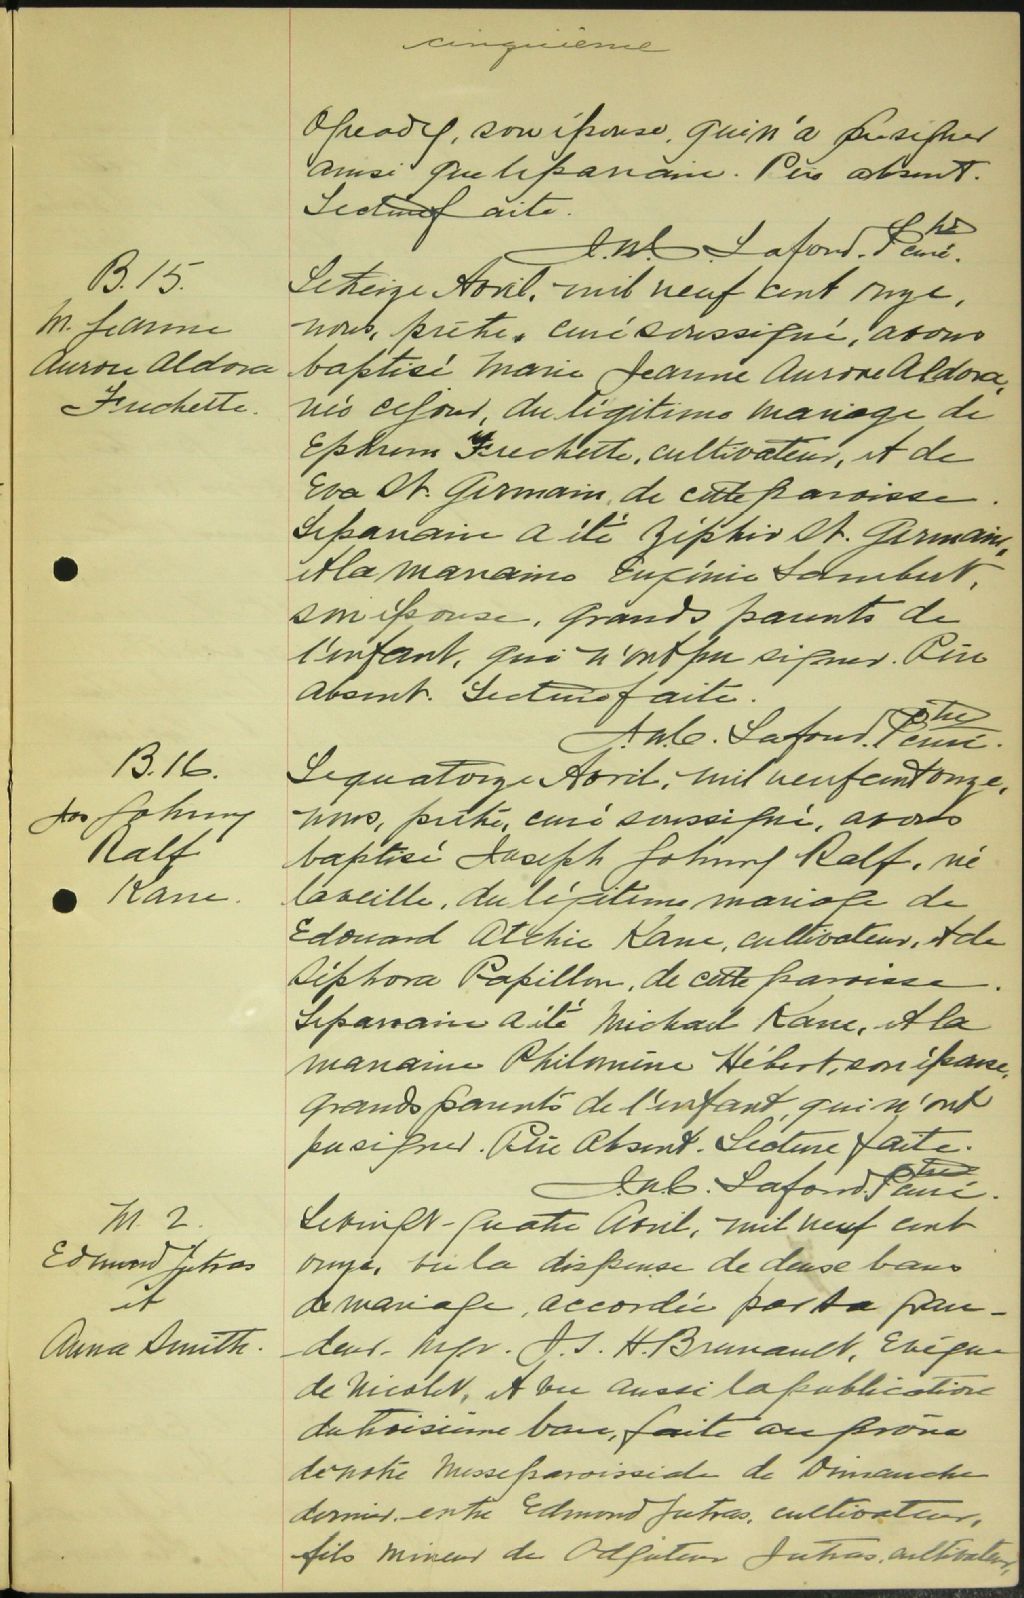 cinquième
son épouse, qui n'a pu signer
ainsi que le parrain. Père absent.
Lecture faite.
J.N.C. Lafond. Ptre curé.
B. 15.
M. Jeanne
Aurore Aldora
Frechette.
Le treize Avril, mil neuf cent onze,
nous, prêtre, curé soussigné, avons
baptisé Marie Jeanne Aurore Aldora,
née ce jour, du légitime mariage de
Ephrem Frechette, cultivateur, et de
Eva St. Germain, de cette paroisse.
Le parrain a été Zéphir St. Germain,
et la marraine Eugénie Lambert,
son épouse, grands parents de
l'enfant, qui n'ont pu signer. Père
absent. Lecture faite.
J.N.C. Lafond. Ptre curé.
B. 16.
Jos Johnny
Ralf
Kane.
Le quatorze Avril, mil neuf cent onze,
nous, prêtre, curé soussigné, avons
baptisé Joseph Johnny Ralf, né
la veille, du légitime mariage de
Edouard Atchie Kane, cultivateur, et de
Séphora Papillon, de cette paroisse.
Le parrain a été Michael Kane, et la
marraine Philomène Hébert, son épouse,
grands parents de l'enfant, qui n'ont
pu signer. Père Absent. Lecture faite.
J.N.C. Lafond. Ptre curé.
M. 2.
Edmond Jutras
et
Anna Smith.
Le vingt-quatre Avril, mil neuf cent
onze, vu la dispense de deux bans
de mariage, accordée par Sa Gran-
deur Mgr. J. S. H. Brunault, Evêque
de Nicolet, et vu aussi la publication
du troisième ban, faite au prône
de notre Messe paroissiale de Dimanche
dernier entre Edmond Jutras, cultivateur,
fils mineur de Jutras, cultivateur,